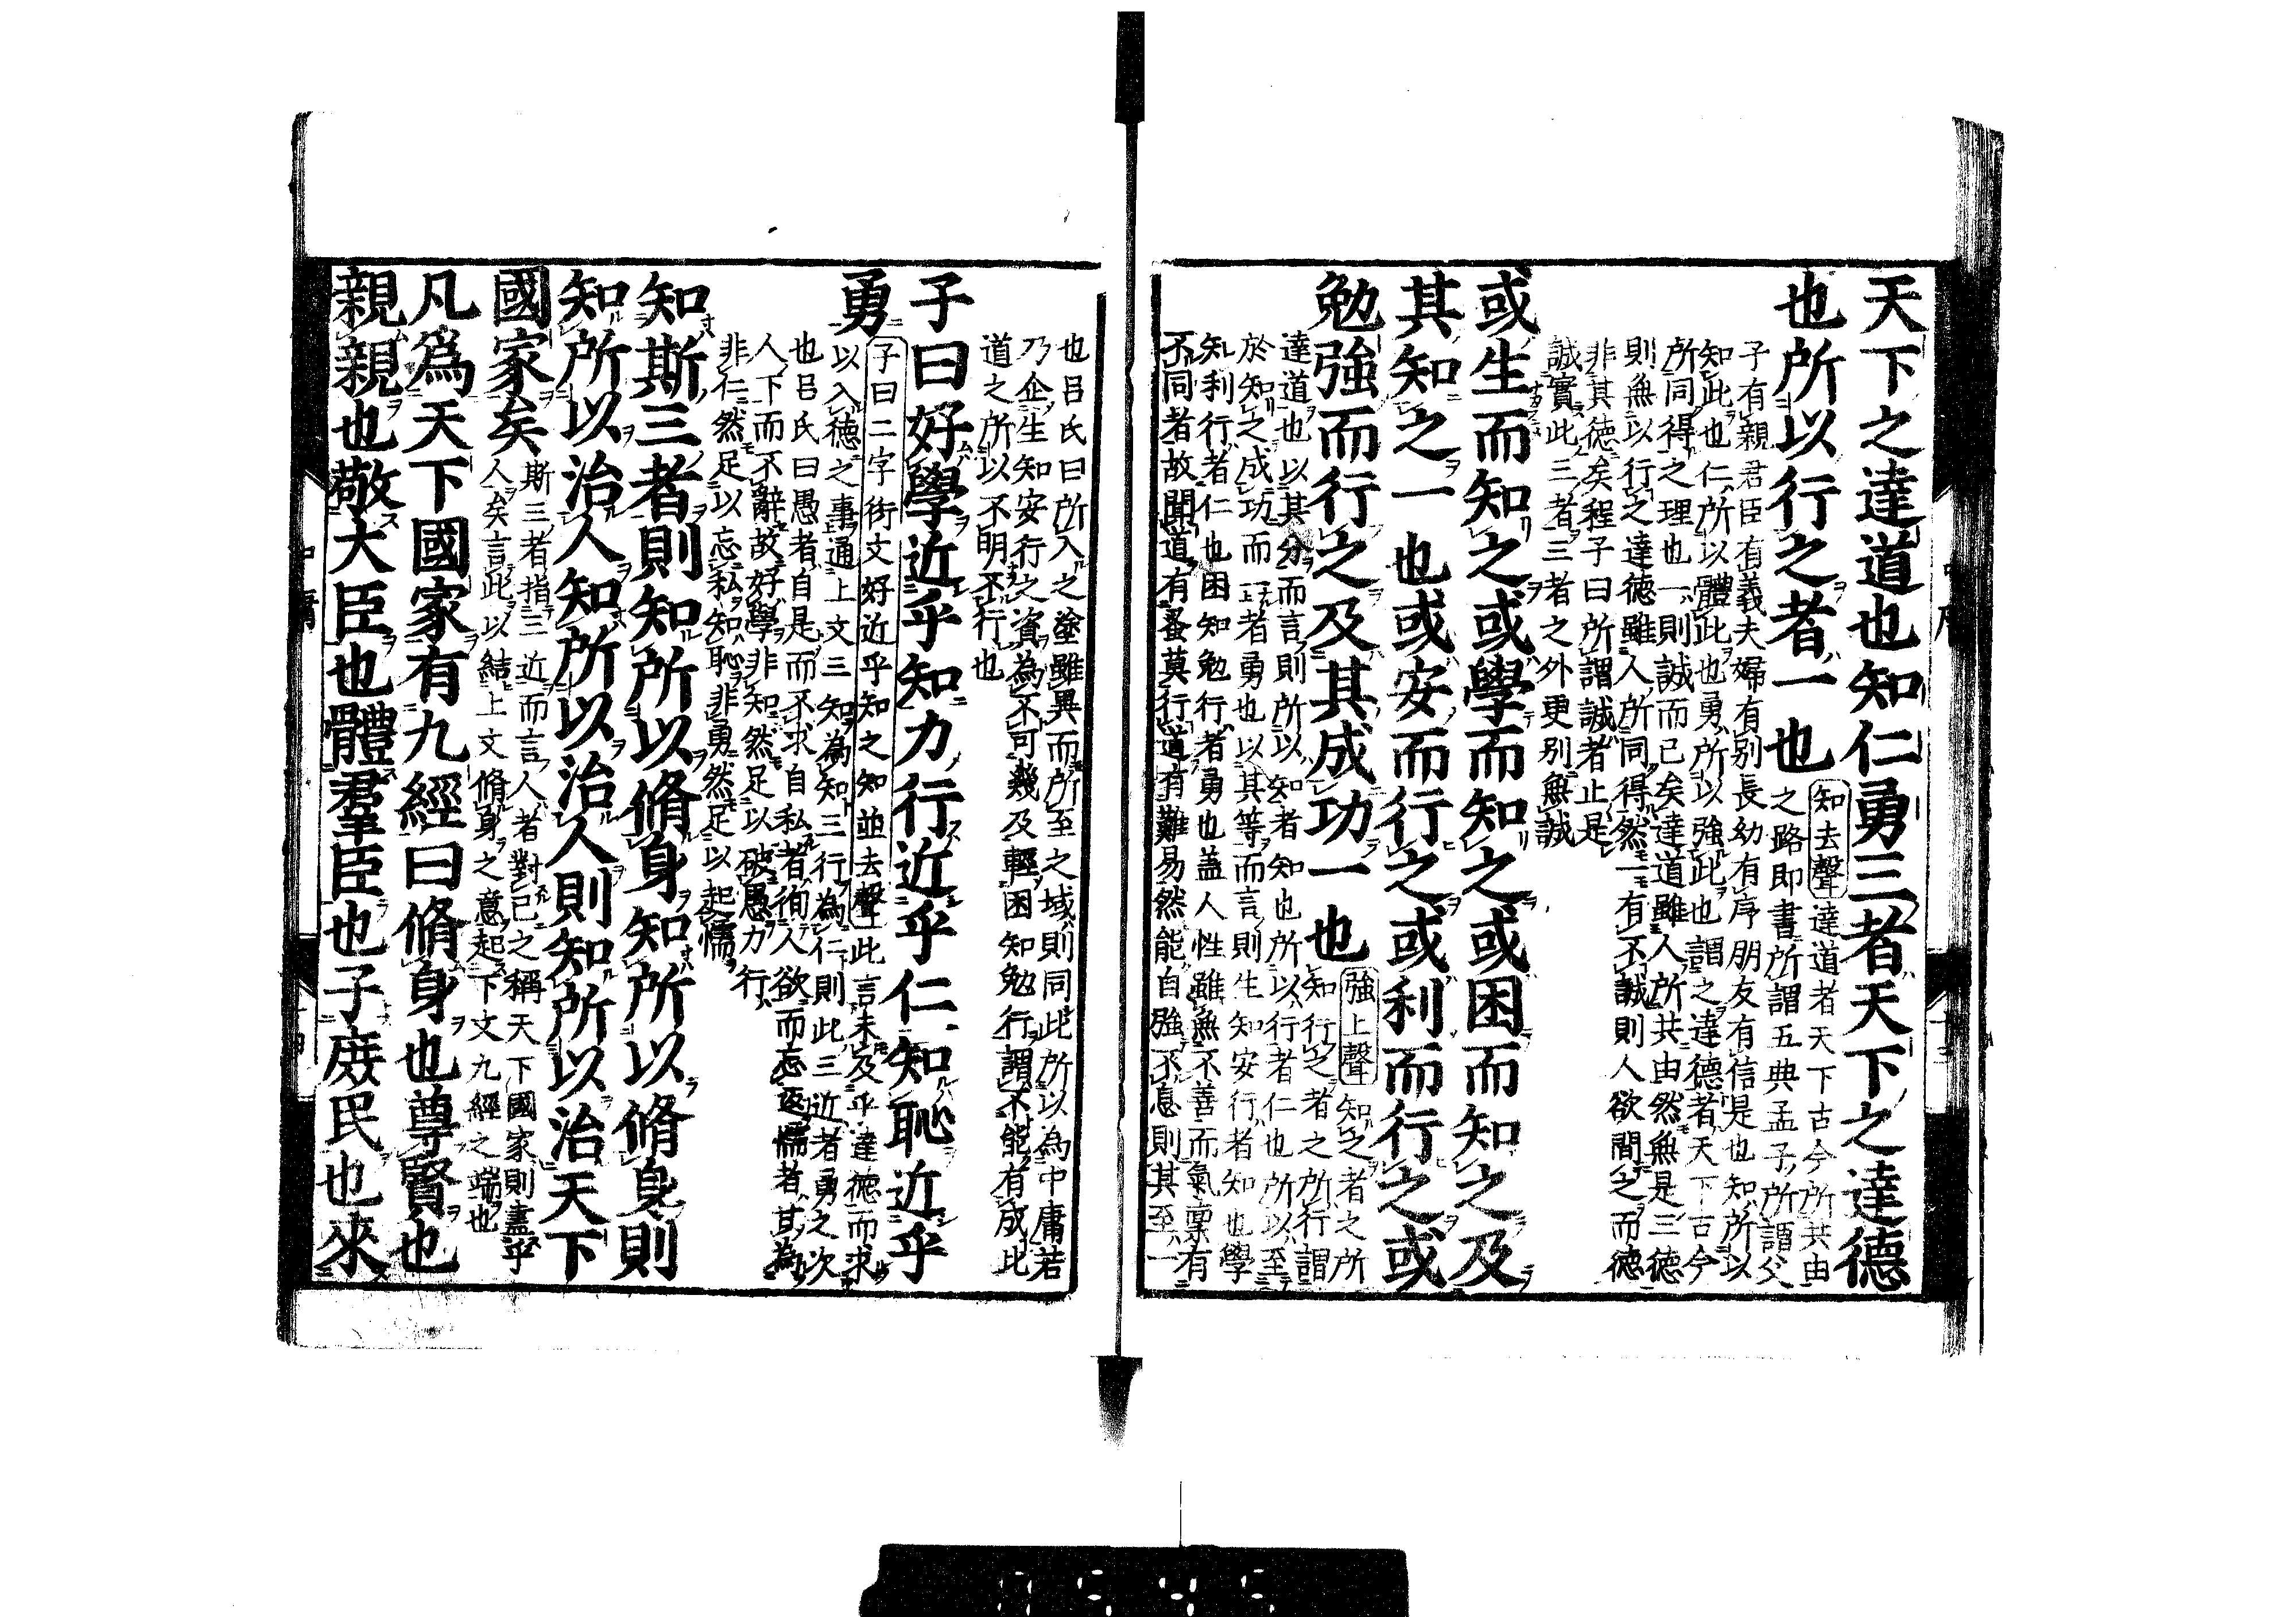 天下之達道也知仁勇三者天下之達德
也所以行之者一也
知去聲達道者天下古今所共由
之路即書所謂五典孟子所謂父
子有親君臣有義夫婦有別長幼有序朋友有信是也知所以
知此也仁所以體此也勇所以強此也謂之達德者天下古今
所同得之理也一則誠而已矣達道雖人所共由然無是三德
則無以行之達德雖人所同得然一有不誠則人欲間之而德
非其德矣程子曰所謂誠者止是
誠實此三者三者之外更別無誠
或生而知之或學而知之或困而知之及
其知之一也或安而行之或利而行之或
勉強而行之及其成功一也
強上聲知之者之所
知行之者之所行謂
達道也以其分而言則所以知者知也所以行者仁也所以至
於知之成功而一者勇也以其等而言則生知安行者知也學
知利行者仁也困知勉行者勇也蓋人性雖無不善而氣稟有
不同者故聞道有蚤莫行道有難易然能自強不息則其至一
也呂氏曰所入之塗雖異而所至之域則同此所以為中庸若
乃企生知安行之資為不可幾及輕困知勉行謂不能有成此
道之所以不明不行也
子曰好學近乎知力行近乎仁知恥近乎
勇
子曰二字衍文好近乎知之知並去聲此言未及乎達德而求
以入德之事通上文三知為知三行為仁則此三近者勇之次
也呂氏曰愚者自是而不求自私者徇人欲而忘返懦者甘為
人下而不辭故好學非知然足以破愚力行
非仁然足以忘私知恥非勇然足以起懦
知斯三者則知所以脩身知所以脩身則
知所以治人知所以治人則知所以治天下
國家矣
斯三者指三近而言人者對己之稱天下國家則盡乎
人矣言此以結上文脩身之意起下文九經之端也
凡爲天下國家有九經曰脩身也尊賢也
親親也敬大臣也體羣臣也子庶民也來
中庸